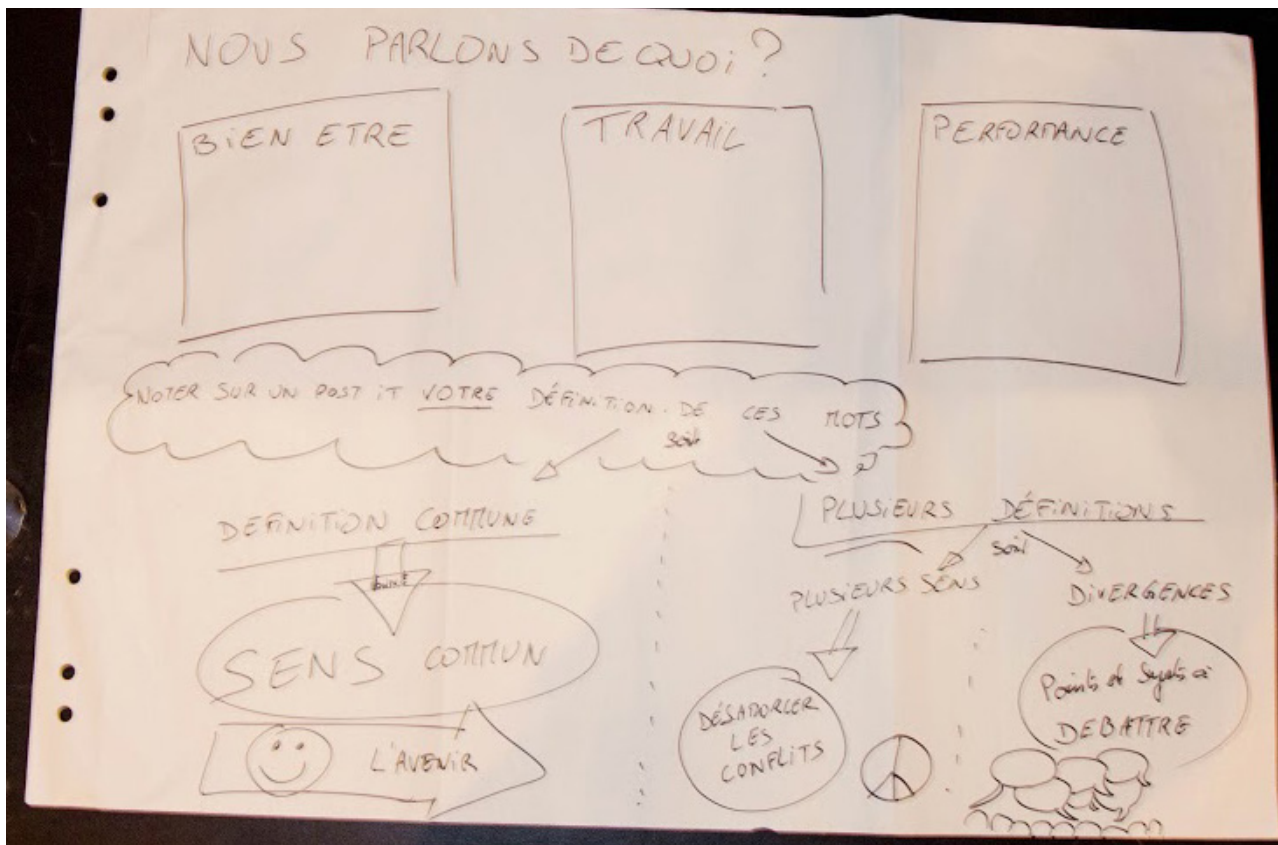 NOUS PARLONS DE QUOI ?
BIEN ETRE
TRAVAIL
PERFORMANCE
NOTER SUR UN POST IT VOTRE DÉFINITION DE CES MOTS
soit
DEFINITION COMMUNE
SENS COMMUN
L'AVENIR
PLUSIEURS DÉFINITIONS
soit
PLUSIEURS SENS
DIVERGENCES
DÉSAMORCER
LES
CONFLITS
Points et Sujets à
DEBATTRE